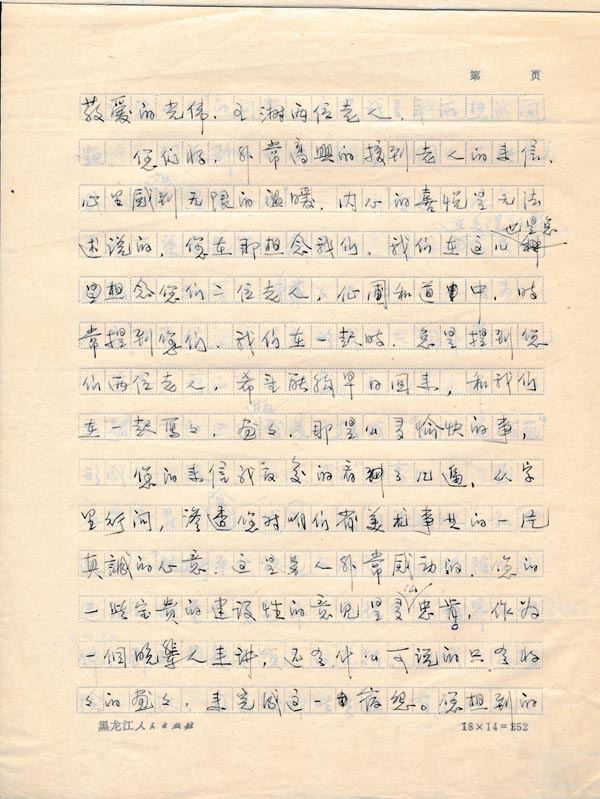 第 页
敬爱的光伟、玉湖两位老人,
您们好,非常高興的接到老人的来信,
心里感到无限的溫暖,内心的喜悦是无法
述说的,您在那想念我们,我们在这儿也是总
想念您们二位老人,征周和道中,时
常提到您们,我们在一起时,总是提到您
们两位老人,希望能够早日回来,和我们
在一起写写,画画,那是公多愉快的事,
您的来信我反复的看了几遍,从字
里行间,渗透您对咱们省美术事业的一片
真誠的心意,这是令人非常感动的,您的
一些宝贵的建设性的意见是多么忠肯。作为
一個晚輩人来讲,还有什么可说的只有好
好的画画,来完成这一宿愿。您想到的
黑龙江人人出版社
18×14=252